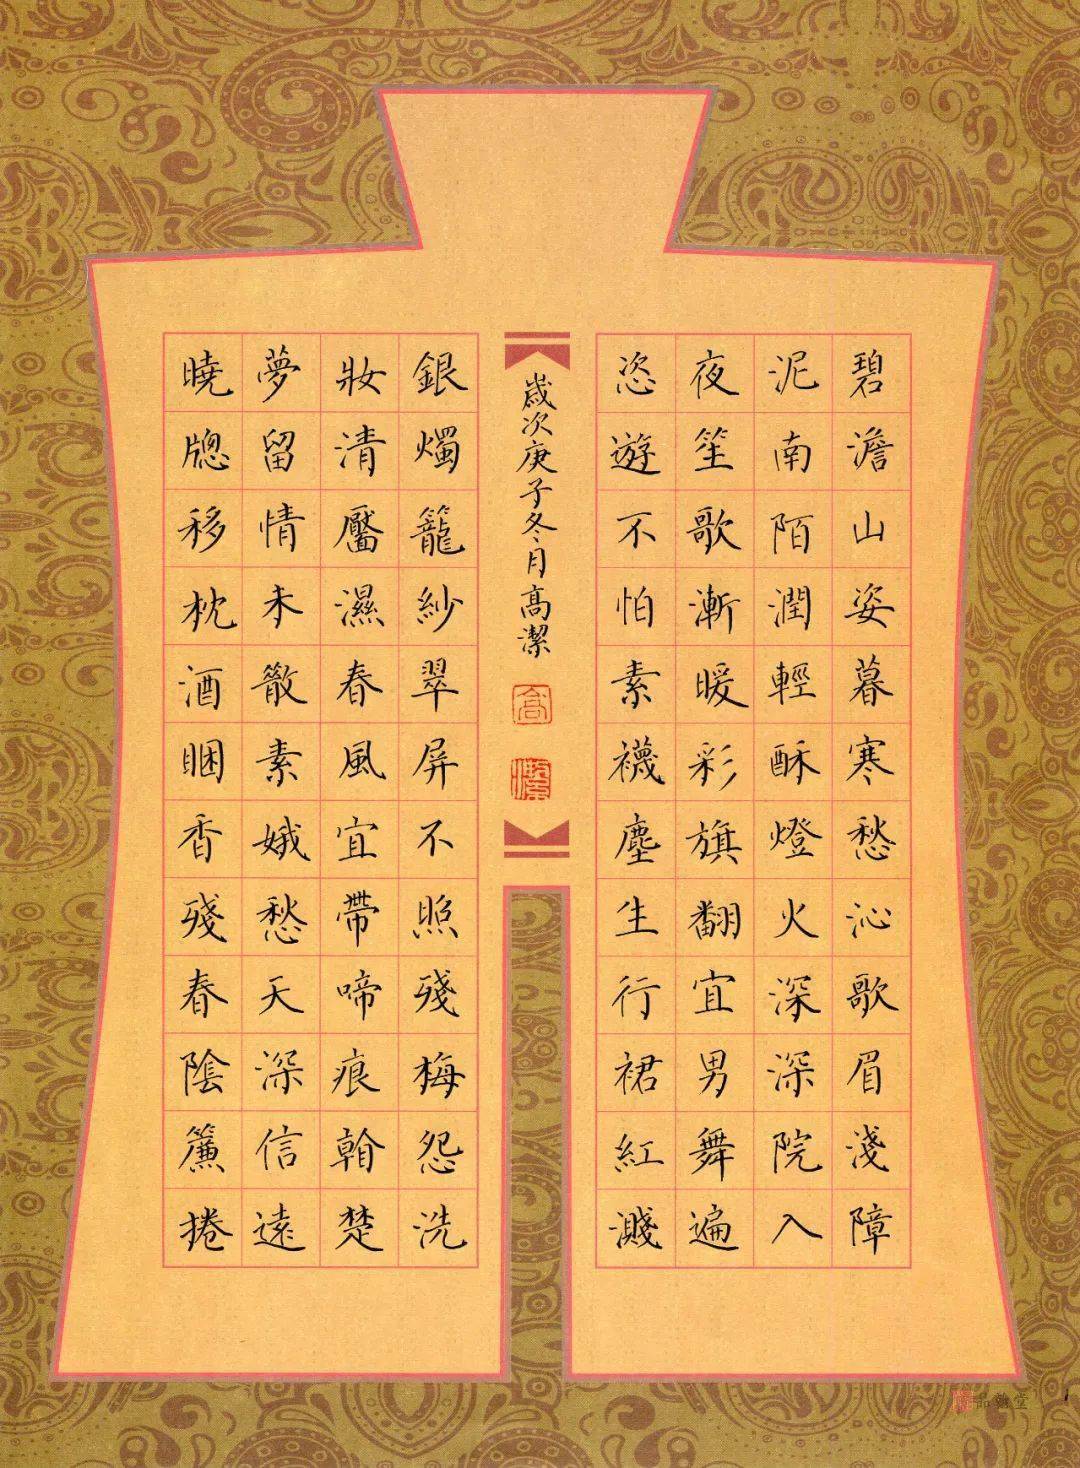 碧澹山姿暮寒愁沁歌眉淺障
泥南陌潤輕酥燈火深深院入
夜笙歌漸暖彩旗翻宜男舞遍
恣遊不怕素襪塵生行裙紅濺
歲次庚子冬月高潔
高
潔
銀燭籠紗翠屏不照殘梅怨洗
妝清靨濕春風宜帶啼痕看楚
夢留情未散素娥愁天深信遠
曉牕移枕酒睏香殘春陰簾捲
品翰堂